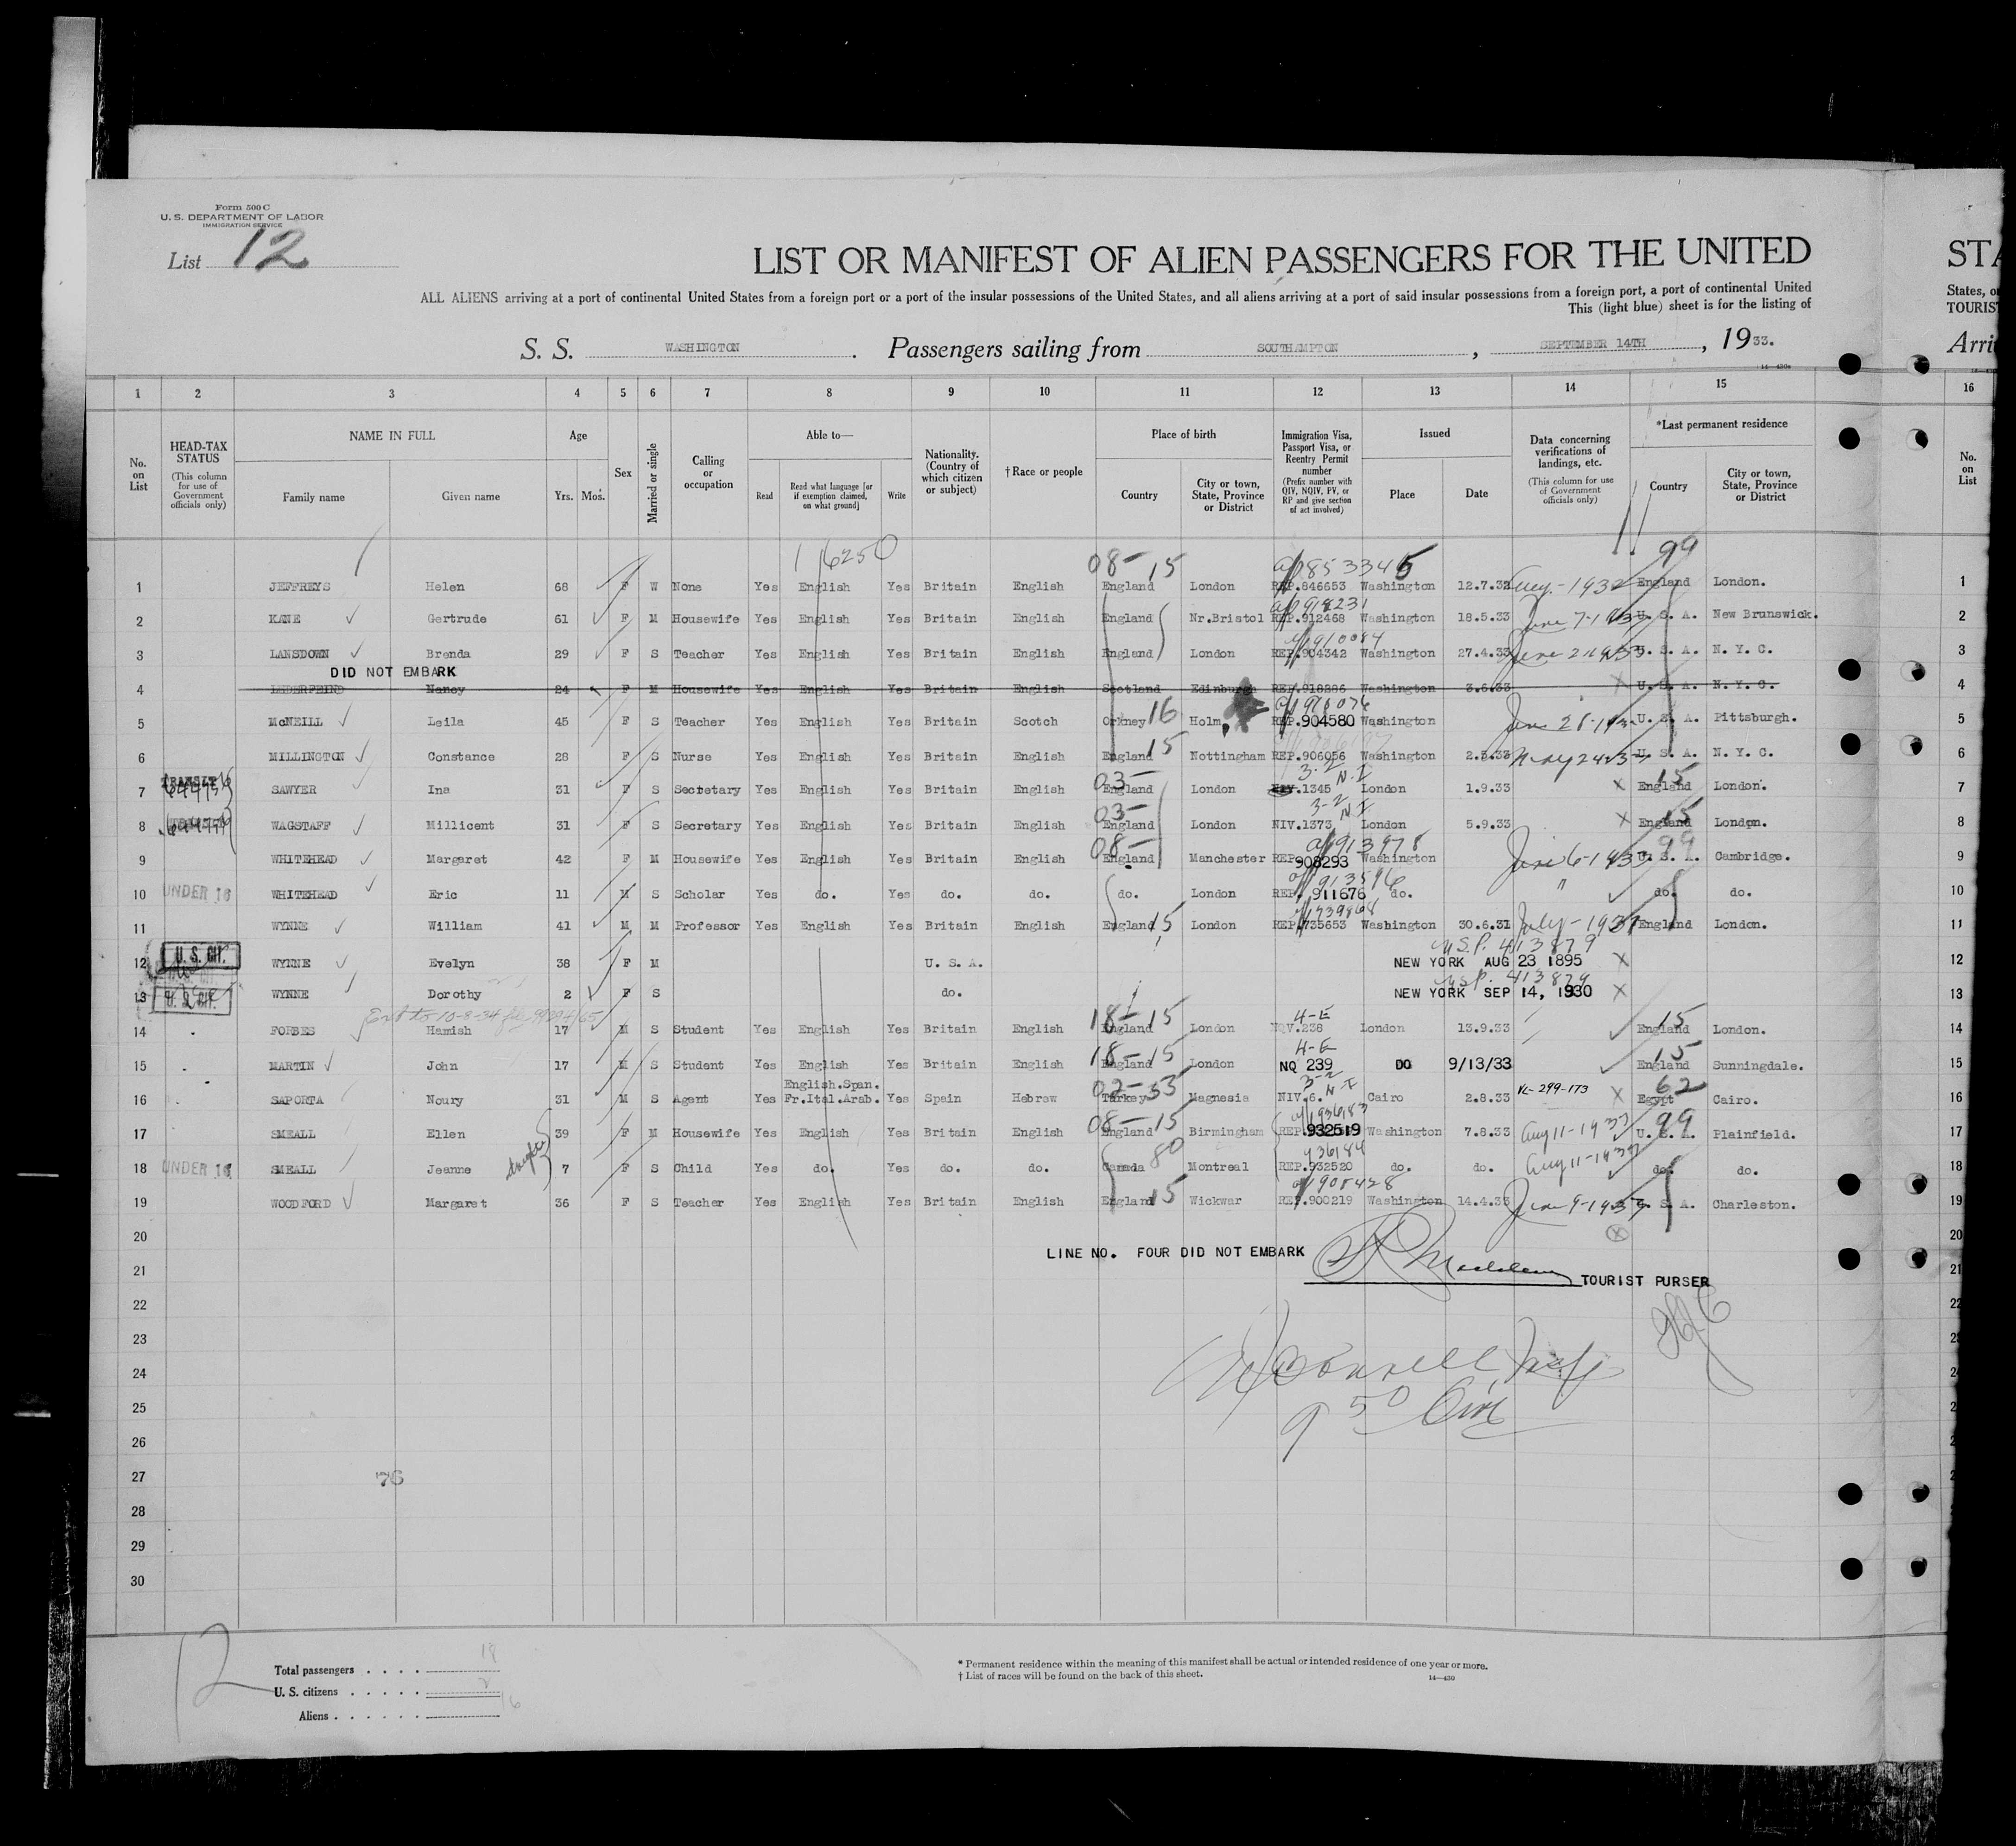 Form 500 C
U. S. DEPARTMENT OF LABOR
IMMIGRATION SERVICE
List 12
LIST OR MANIFEST OF ALIEN PASSENGERS FOR THE UNITED
STA
ALL ALIENS arriving at a port of continental United States from a foreign port or a port of the insular possessions of the United States, and all aliens arriving at a port of said insular possessions from a foreign port, a port of continental United
States, o
This (light blue) sheet is for the listing of
TOURIST
S. S. WASHINGTON. Passengers sailing from SOUTHAMPTON, SEPTEMBER 14TH, 1933.
Arri
14—430a
1 2 3 4 5 6 7 8 9 10 11 12 13 14 15 16
No. on List
HEAD-TAX STATUS
(This column for use of Government officials only)
NAME IN FULL
Family name
Given name
Age
Yrs. Mos.
Sex
Married or single
Calling or occupation
Able to—
Read
Read what language [or if exemption claimed, on what ground]
Write
Nationality. (Country of which citizen or subject)
† Race or people
Place of birth
Country
City or town, State, Province or District
Immigration Visa, Passport Visa, or Reentry Permit number
(Prefix number with QIV, NQIV, PV, or RP and give section of act involved)
Issued
Place
Date
Data concerning verifications of landings, etc.
(This column for use of Government officials only)
*Last permanent residence
Country
City or town, State, Province or District
No. on List
1 16250 08- 15 853346 99
1 JEFFREYS Helen 68 F W None Yes English Yes Britain English England London REP.846653 Washington 12.7.32 Aug.-1932 England London. 1
918231
2 KANE Gertrude 61 F M Housewife Yes English Yes Britain English England Nr.Bristol REP.912468 Washington 18.5.33 U. S. A. New Brunswick. 2
910084
3 LANSDOWN Brenda 29 F S Teacher Yes English Yes Britain English England London REP.904342 Washington 27.4.33 U. S. A. N. Y. C. 3
DID NOT EMBARK
4 Nancy 24 F M Housewife Yes English Yes Britain English Scotland Edinburgh REP.918286 Washington 3.6.33 U. S. A. N. Y. C. 4
5 McNEILL Leila 45 F S Teacher Yes English Yes Britain Scotch Orkney 16 Holm, REP.904580 Washington U. S. A. Pittsburgh. 5
6 MILLINGTON Constance 28 F S Nurse Yes English Yes Britain English England 15 Nottingham REP.906056 Washington 2.5.33 May 24 U. S. A. N. Y. C. 6
03- 3-2 N-I 15
7 TRANSIT SAWYER Ina 31 F S Secretary Yes English Yes Britain English England London 1345 London 1.9.33 England London. 7
03- 3-2 N I 15
8 WAGSTAFF Millicent 31 F S Secretary Yes English Yes Britain English England London NIV.1373 London 5.9.33 England London. 8
08- 913978 99
9 WHITEHEAD Margaret 42 F M Housewife Yes English Yes Britain English England Manchester REP. 908293 Washington U. S. A. Cambridge. 9
913596
10 UNDER 16 WHITEHEAD Eric 11 M S Scholar Yes do. Yes do. do. do. London REP. 911676 do. " do. do. 10
11 WYNNE William 41 M M Professor Yes English Yes Britain English England 15 London REP.735653 Washington 30.6.31 July-1931 England London. 11
U.S.P. 413879
12 U. S. CIT. WYNNE Evelyn 38 F M U. S. A. NEW YORK AUG 23 1895 12
U.S.P. 413879
13 U. S. CIT. WYNNE Dorothy 2 F S do. NEW YORK SEP 14, 1930 13
18-15 4-E 15
14 FORBES Hamish 17 M S Student Yes English Yes Britain English England London NQV.238 London 13.9.33 England London. 14
18-15 4-E 15
15 MARTIN John 17 M S Student Yes English Yes Britain English England London NQ 239 DO 9/13/33 England Sunningdale. 15
English.Span. 02-55 3-2 N-I 62
16 SAPORTA Noury 31 M S Agent Yes Fr.Ital.Arab. Yes Spain Hebrew Turkey Magnesia NIV.6. Cairo 2.8.33 VL-299-173 Egypt Cairo. 16
08-15 936183 99
17 SMEALL Ellen 39 F M Housewife Yes English Yes Britain English England Birmingham REP.932519 Washington 7.8.33 Aug 11-1933 U. S. A. Plainfield. 17
80 936184
18 UNDER 16 SMEALL Jeanne 7 F S Child Yes do. Yes do. do. Canada Montreal REP.932520 do. do. Aug 11-1933 do. do. 18
908428
19 WOODFORD Margaret 36 F S Teacher Yes English Yes Britain English England 15 Wickwar REP.900219 Washington 14.4.33 U. S. A. Charleston. 19
20 20
LINE NO. FOUR DID NOT EMBARK
21 TOURIST PURSER 21
22 22
23
24
25
26
27 76
28
29
30
12
Total passengers . . . . 18
U. S. citizens . . . . . 2
Aliens . . . . . . 16
* Permanent residence within the meaning of this manifest shall be actual or intended residence of one year or more.
† List of races will be found on the back of this sheet.
14—430